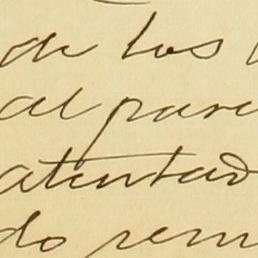 de los
al pare
atentado
do rem